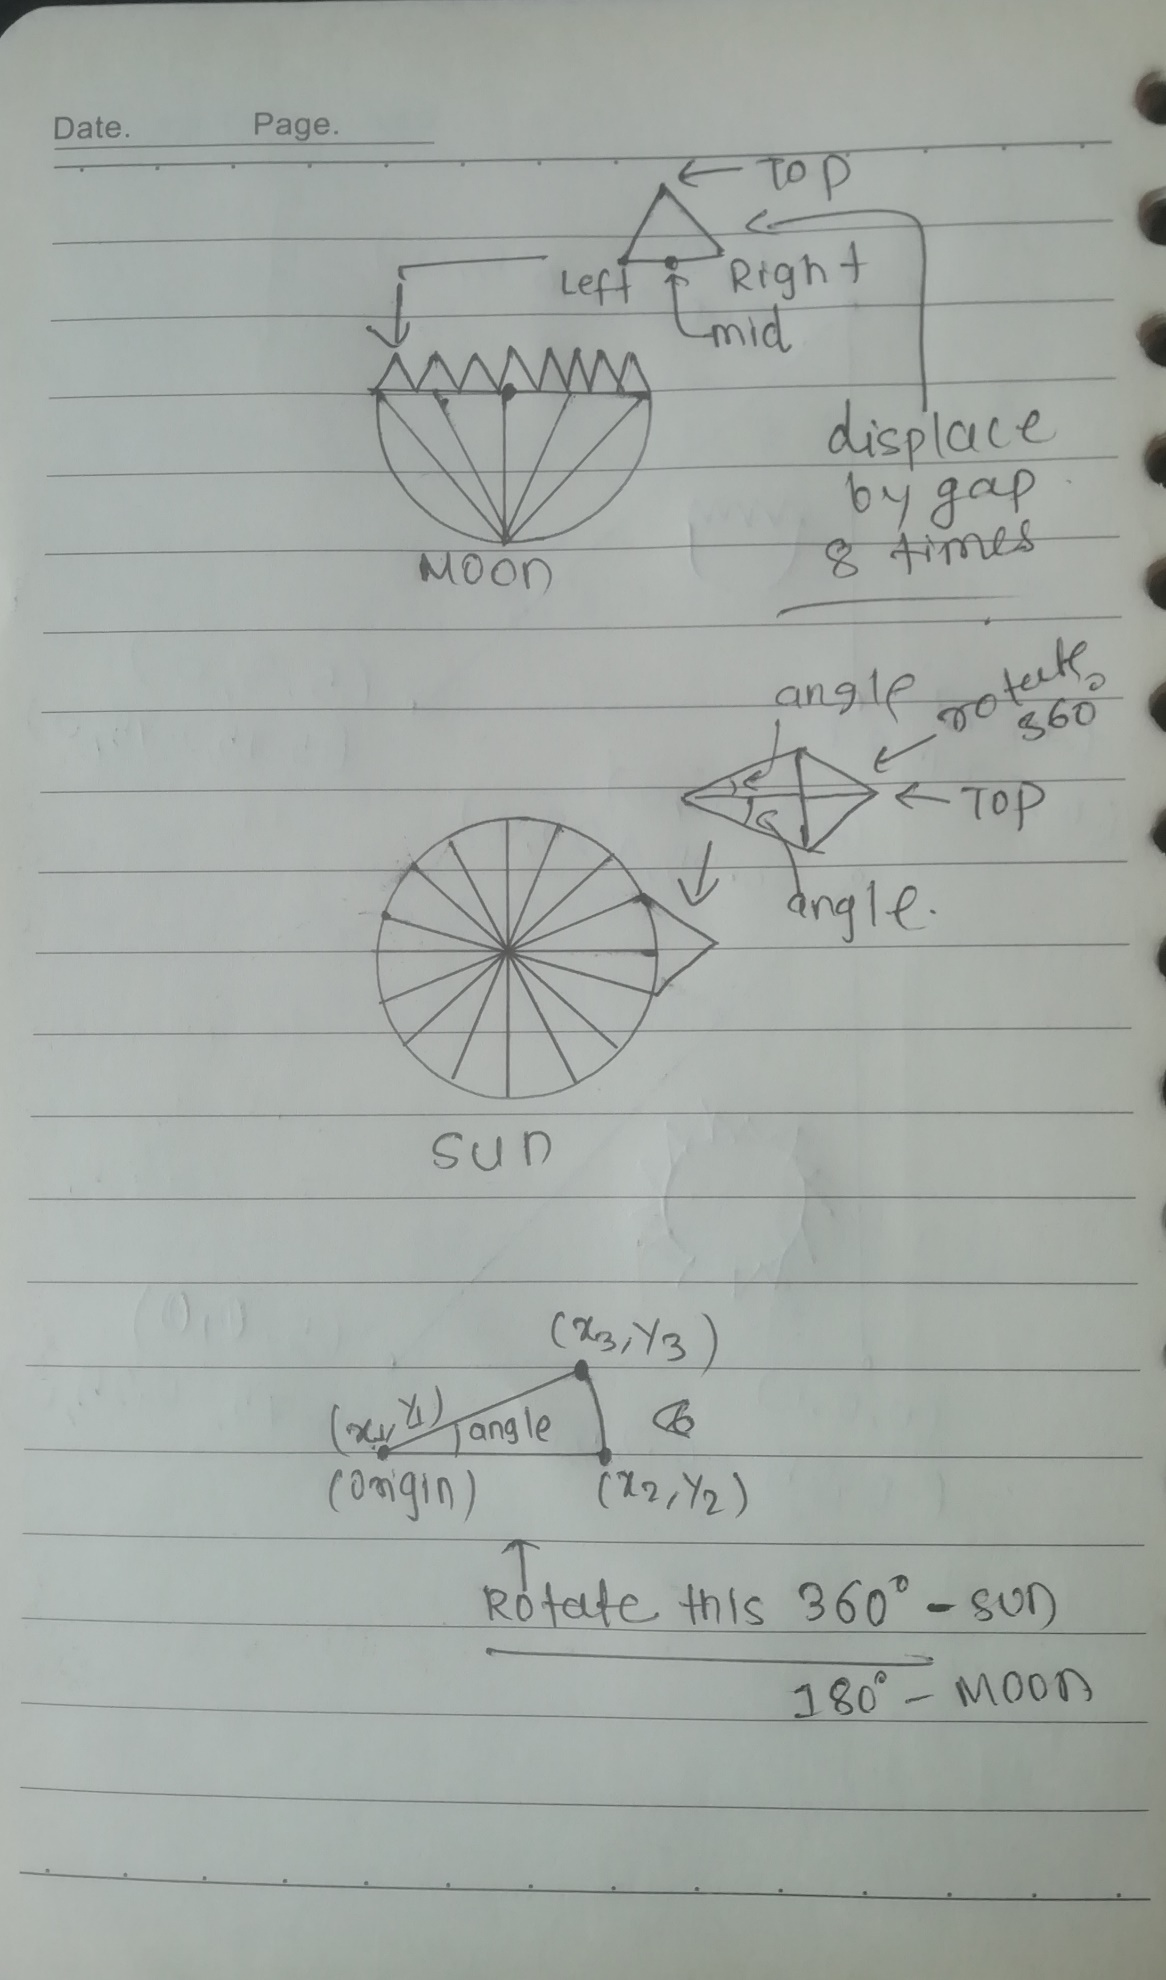 Date. Page.
← TOP
Left Right
mid
displace
by gap
8 times
MOON
angle rotate
360
← TOP
angle.
SUN
(x3,y3)
(x1,y1) angle
(origin) (x2,y2)
Rotate this 360° - SUN
180° - MOON